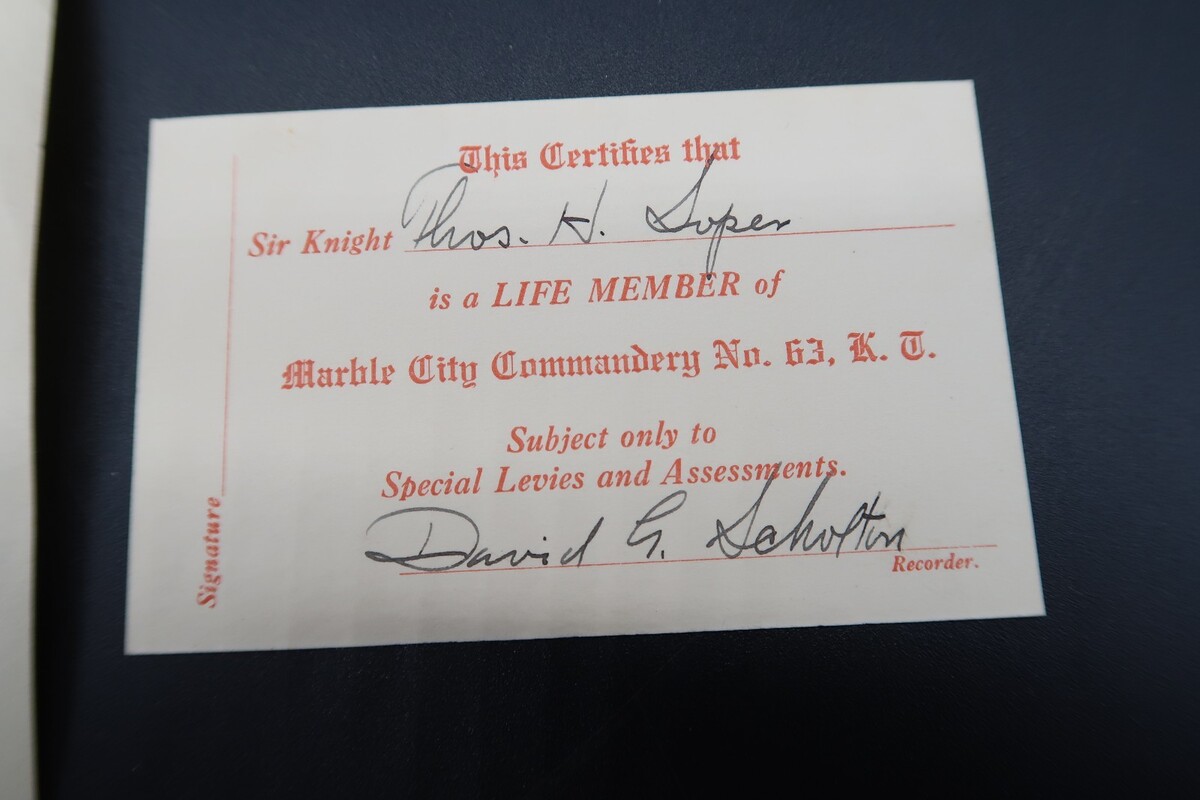 This Certifies that
Sir Knight Thos. H. Soper
is a LIFE MEMBER of
Marble City Commandery No. 63, K. T.
Subject only to
Special Levies and Assessments.
David G. Scholton
Recorder.
Signature